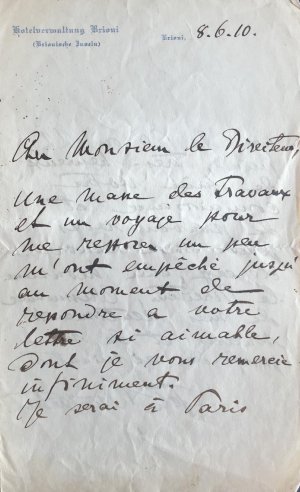 Hotelverwaltung Brioni
(Brionische Inseln)
Brioni, 8.6.10.
Cher Monsieur le Directeur,
Une masse des travaux
et un voyage pour
me reposer un peu
m'ont empêché jusqu'
au moment de
repondre a votre
lettre si aimable,
dont je vous remercie
infiniment.
Je serai à Paris